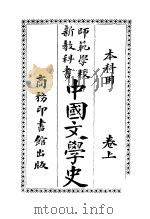 本科用
卷上
中國文學史
師範學校
新教科書
商務印書館出版